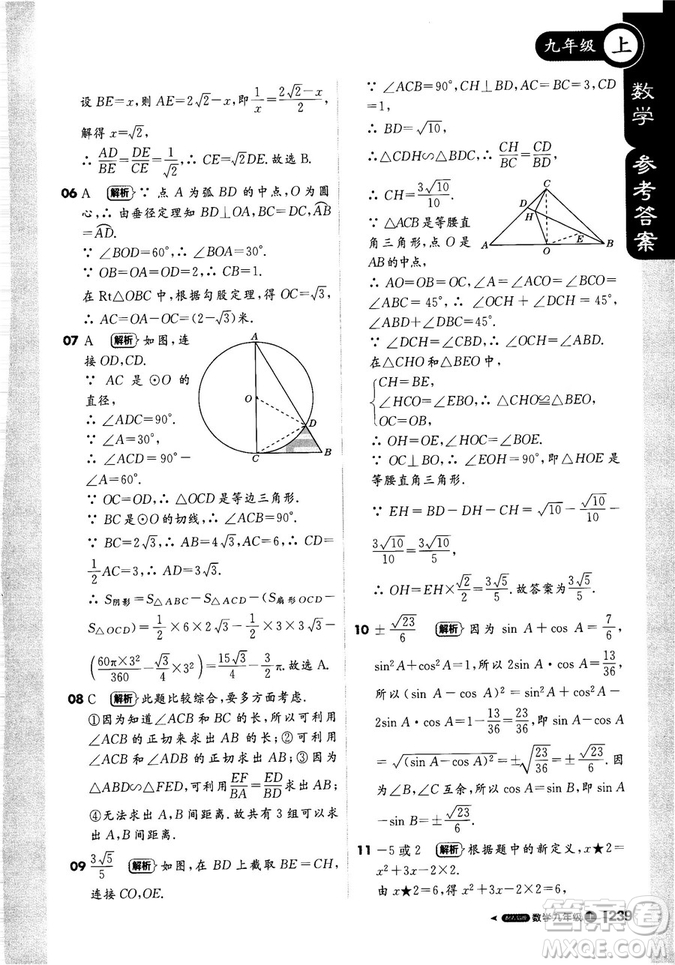 九年级 上
数学 参考答案
设 BE=x,则 AE=2√2-x,即 1/x=(2√2-x)/2,
解得 x=√2.
∴ AD/AC=DE/CE=1/√2,∴ CE=√2DE.故选 B.
06 A 解析 ∵ 点 A 为弧 BD 的中点,O 为圆
心,∴ 由垂径定理知 BD⊥OA,BC=DC,AB
=AD.
∵ ∠BOD=60°,∴ ∠BOA=30°.
∵ OB=OA=OD=2,∴ CB=1.
在 Rt△OBC 中,根据勾股定理,得 OC=√3,
∴ AC=OA-OC=(2-√3)米.
07 A 解析 如图,连
接 OD,CD.
∵ AC 是 ⊙O 的
直径,
∴ ∠ADC=90°.
∵ ∠A=30°,
∴ ∠ACD=90°-
∠A=60°.
A
O
D
C
B
∵ OC=OD,∴ △OCD 是等边三角形.
∵ BC 是⊙O 的切线,∴ ∠ACB=90°.
∵ BC=2√3,∴ AB=4√3,∴ AC=6.∴ CD=
1/2AC=3.
∴ S阴影=S△ABC-S△ACD-(S扇形OCD-
S△OCD)=1/2×6×2√3-1/2×3×3√3-
(60π×3²/360-√3/4×3²)=15√3/4-3/2π.故选 A.
08 C 解析 此题比较综合,要多方面考虑.
①因为知道∠ACB 和 BC 的长,所以可利用
∠ACB 的正切来求出 AB 的长;②可利用
∠ACB 和∠ADB 的正切求出 AB;③因为
△ABD∽△FED,可利用 EF/BA=ED/BD求出 AB;
④无法求出 A,B 间距离.故共有 3 组可以求出
A,B 间距离.
09 3√5/5 解析 如图,在 BD 上截取 BE=CH,
连接 CO,OE.
∵ ∠ACB=90°,CH⊥BD,AC=BC=3,CD
=1,
∴ BD=√10,
∴ △CDH∽△BDC,∴ CH/BC=CD/BD,
∴ CH=3√10/10.
∵ △ACB 是等腰直
角三角形,点 O 是
AB 的中点,
C
D
H
E
A
O
B
∴ AO=OB=OC,∠A=∠ACO=∠BCO=
∠ABC=45°,∴ ∠OCH+∠DCH=45°,
∠ABD+∠DBC=45°.
∵ ∠DCH=∠CBD,∴ ∠OCH=∠ABD.
在△CHO 和△BEO 中,
CH=BE,
∠HCO=∠EBO,∴ △CHO≌△BEO,
OC=OB,
∴ OH=OE,∠BOE=∠HOC.
∵ OC⊥BO,∴ ∠EOH=90°,即△HOE 是等
腰直角三角形.
∵ EH=BD-DH-CH=√10-√10/10-
3√10/10=3√10/5,
∴ OH=EH×√2/2=3√5/5.故答案为3√5/5.
10 ±√23/6 解析 因为 sin A+cos A=7/6,
sin²A+cos²A=1,
所以(sin A-cos A)²=sin²A+cos²A-2
sin A·cos A=1-13/36=23/36,所以 sin A-cos A
=√(sin A-cos A)²=±√23/36=±√23/6.
因为∠B,∠A 互余,所以 sin A-sin B=
sin A-cos A=±√23/6.
11 -5或 2 解析 根据题中的新定义,x★2=
x²+3x-6=4,
由 x★2=4,得 x²+3x-6=4,
数学九年级 上 1239
答案圈
MXQE.COM